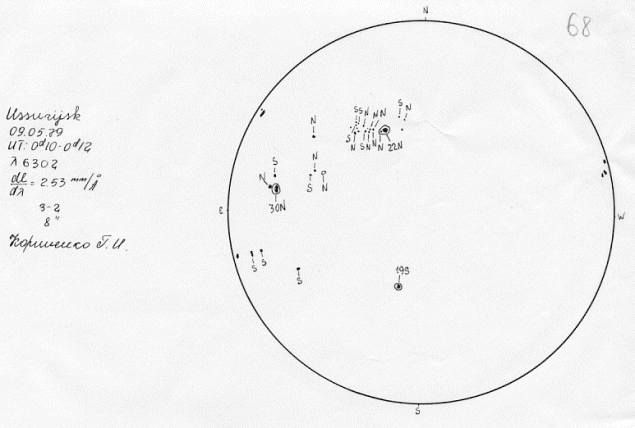 68
N
Ussurijsk
09.05.79
UT: 0ᵈ10-0ᵈ12
λ 6302
dl/dλ = 2.53 mm/Å
3-2
8"
Корниенко Г.И.
S N
S S N N N
S N S N N N 22N
N
S N
N S N
30N
E
W
S S
S
19S
S